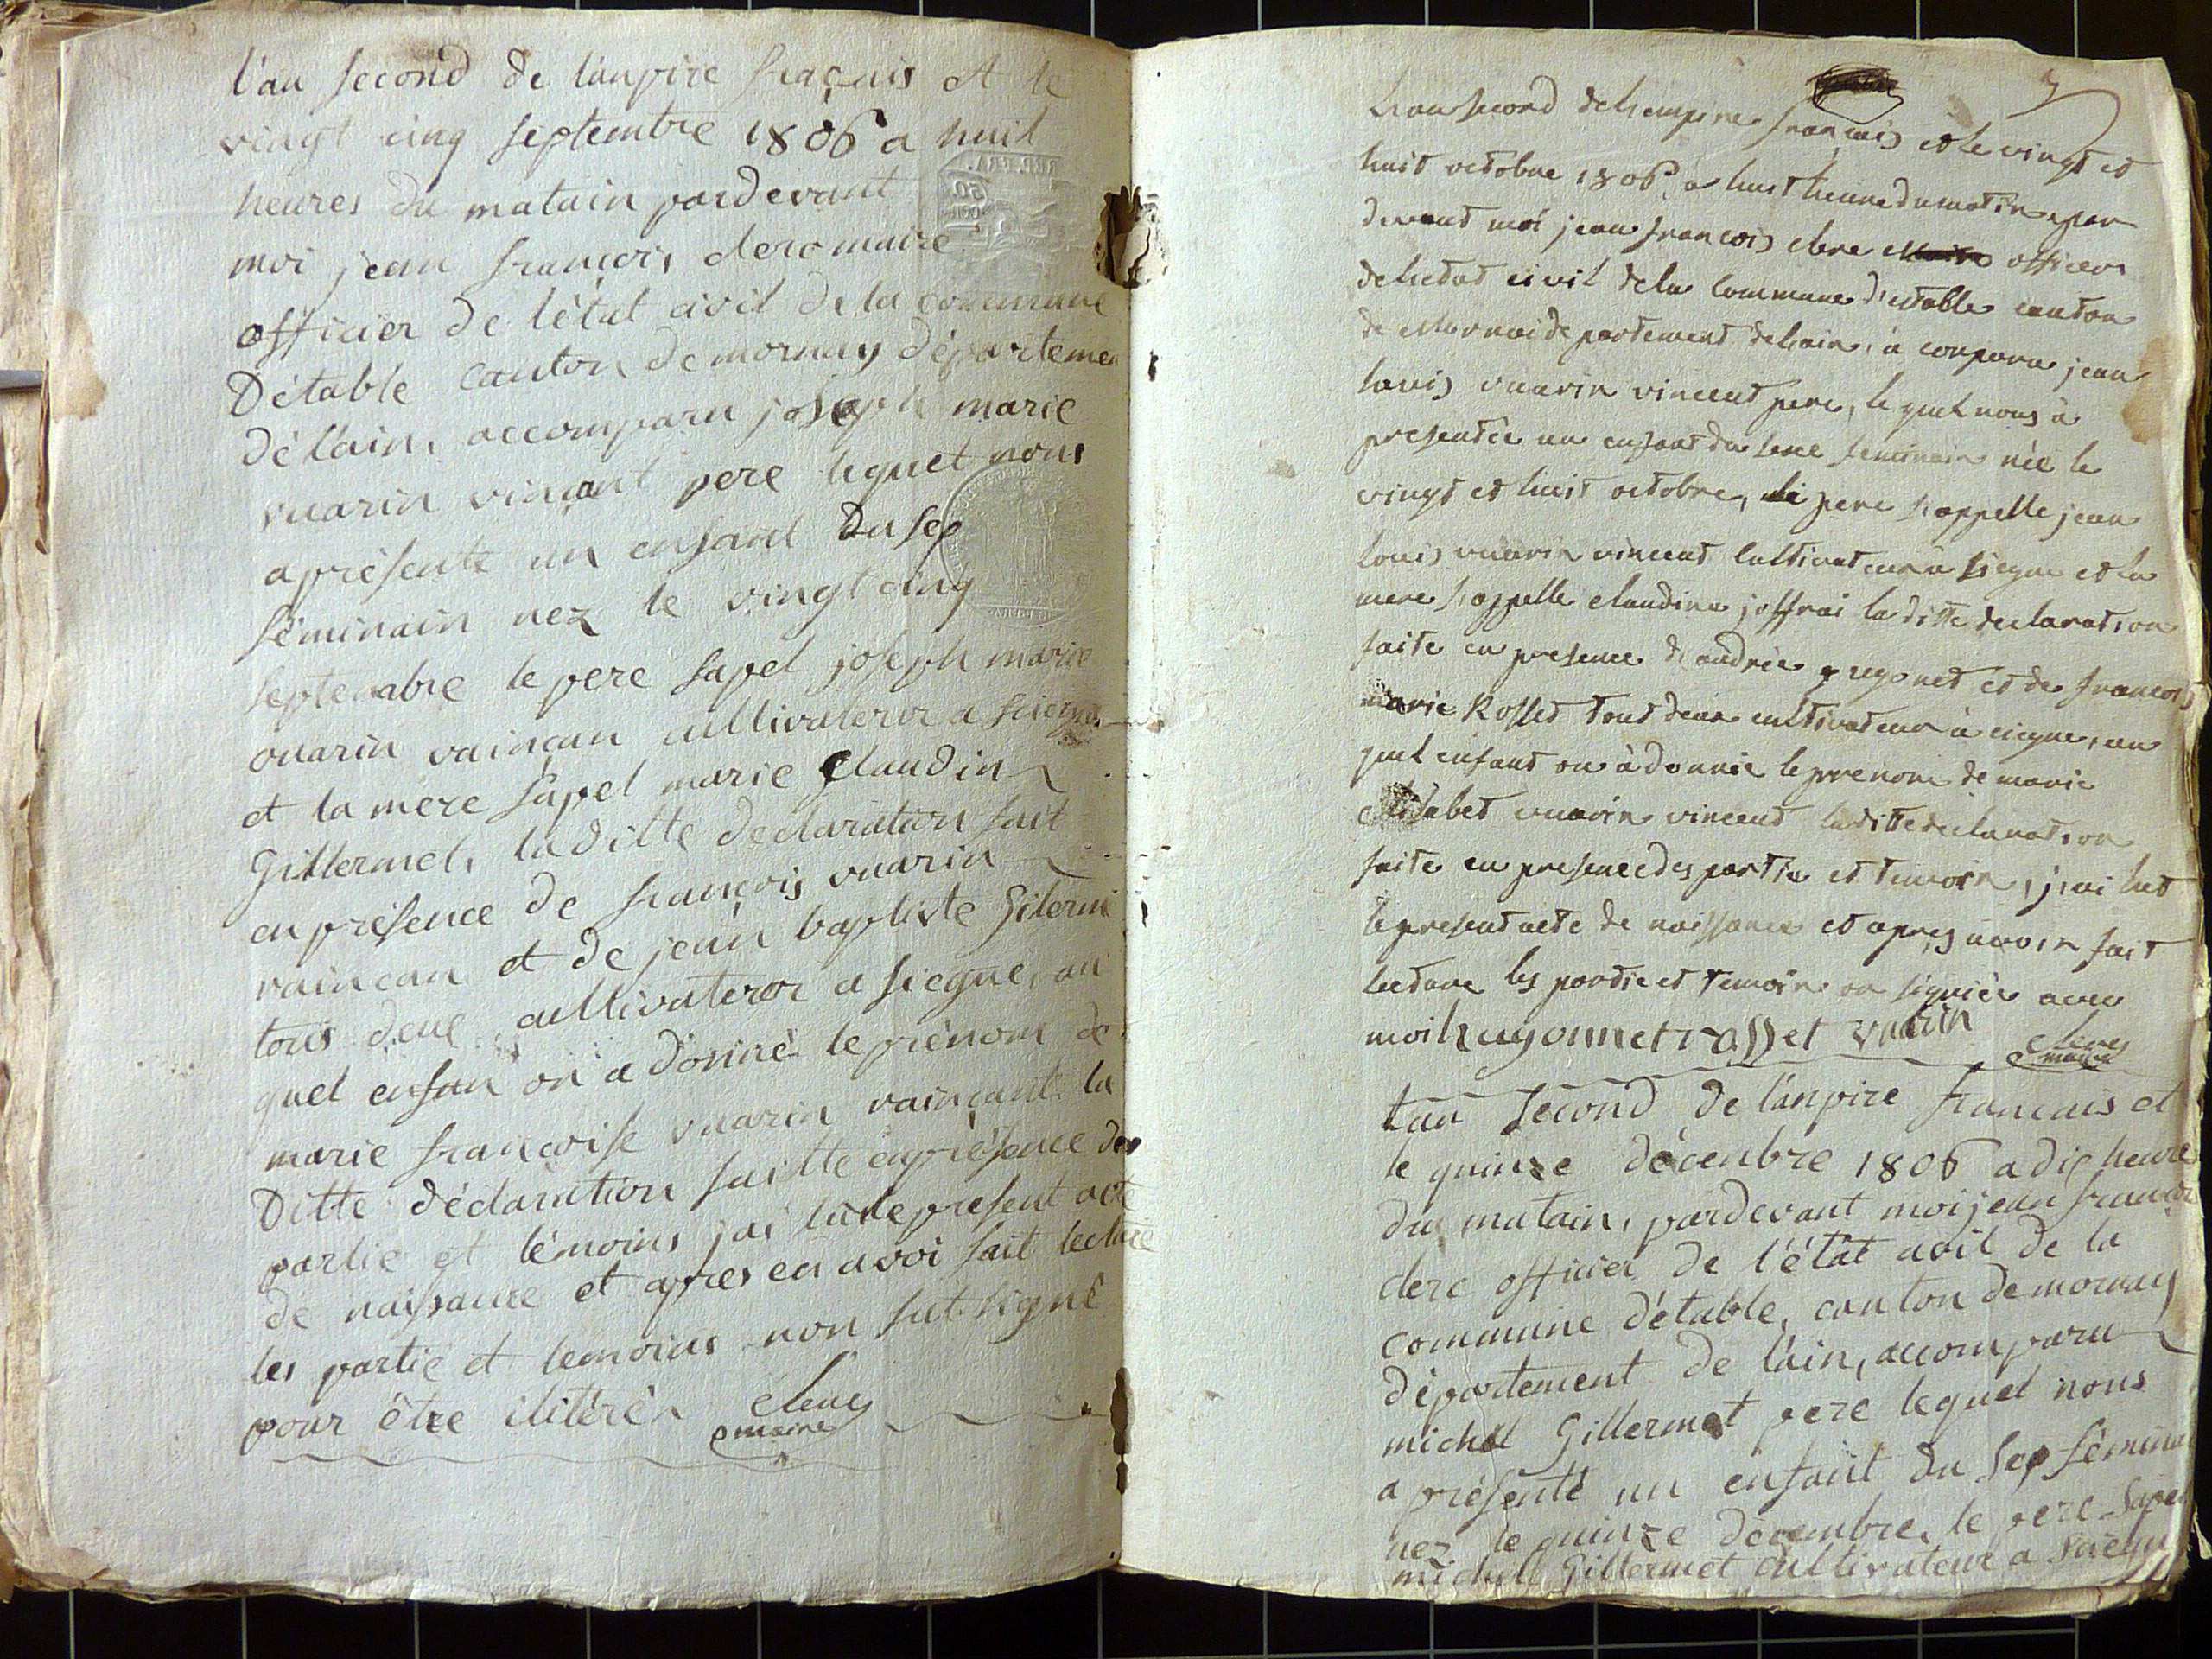 l'an second de l'anpire fraçais et le
vingt cinq septembre 1806 a huit
heures du matain pardevant
moi jean françois clerc maire
officier de l'état civil de la commune
Détable canton de mornay départemen
dé l'ain, accomparu joseph marie
vuarin vinçant pere lequet nous
a présenté un enfant du sep
féminain nez le vingt cinq
septembre le pere sapel joseph marie
vuarin vainçan cultivateur a sciegne
et la mere sapel marie Claudin
Gillermet, la ditte declaration fait
en présence de françois vuarin
vaincan et de jean baptiste Gilerme
tous deue cultivateror a siegne, au
quel enfan on a donné le prénom de
marie françoise vuarin vainçant la
Ditte déclaration faitte en présence des
partie et témoins jai lu le present acte
de naissance et apres en avoi fait lecture
les partie et temoins non sut signé
pour être ilitéré clerc
maire
L'an second de l'empire français et le vingt et
huit octobre 1806 a huit heure du matin par
devant moi jean françois clerc officier
de l'etat civil de la commune d'etable canton
de Mornai departement de l'ain, à conparu jean
louis vuarin vincent pere, le quel nous à
presentée un enfant du sexe feminin née le
vingt et huit octobre, le pere s'appelle jean
louis vuarin vincent cultivateur a siegne et la
mere s'appelle claudine joffrai la ditte declaration
faite en presence d'andrée gregonet et de françois
marie Rosset tout deux cultivateur à ciegne, au
quel enfant on à donnée le prenom de marie
Elisabet vuarin vincent la ditte declaration
faite en presence des partie et temoin, j'ai lut
le present acte de naissance et apres avoir fait
lecture les partie et temoin on signiée avec
moi hugonnet rasset vuarin clerc
maire
l'an second de l'anpire francais et
le quinze décenbre 1806 a dix heure
du matain, pardevant moi jean françoi
clerc officier de l'état civil de la
commune d'étable, canton de mornay
département de l'ain, accomparu
michel Gillermet pere lequel nous
a présenté un enfant du sep fémina
nez le quinze décembre, le pere sapel
michel Gillermet cultivateur a sciegn